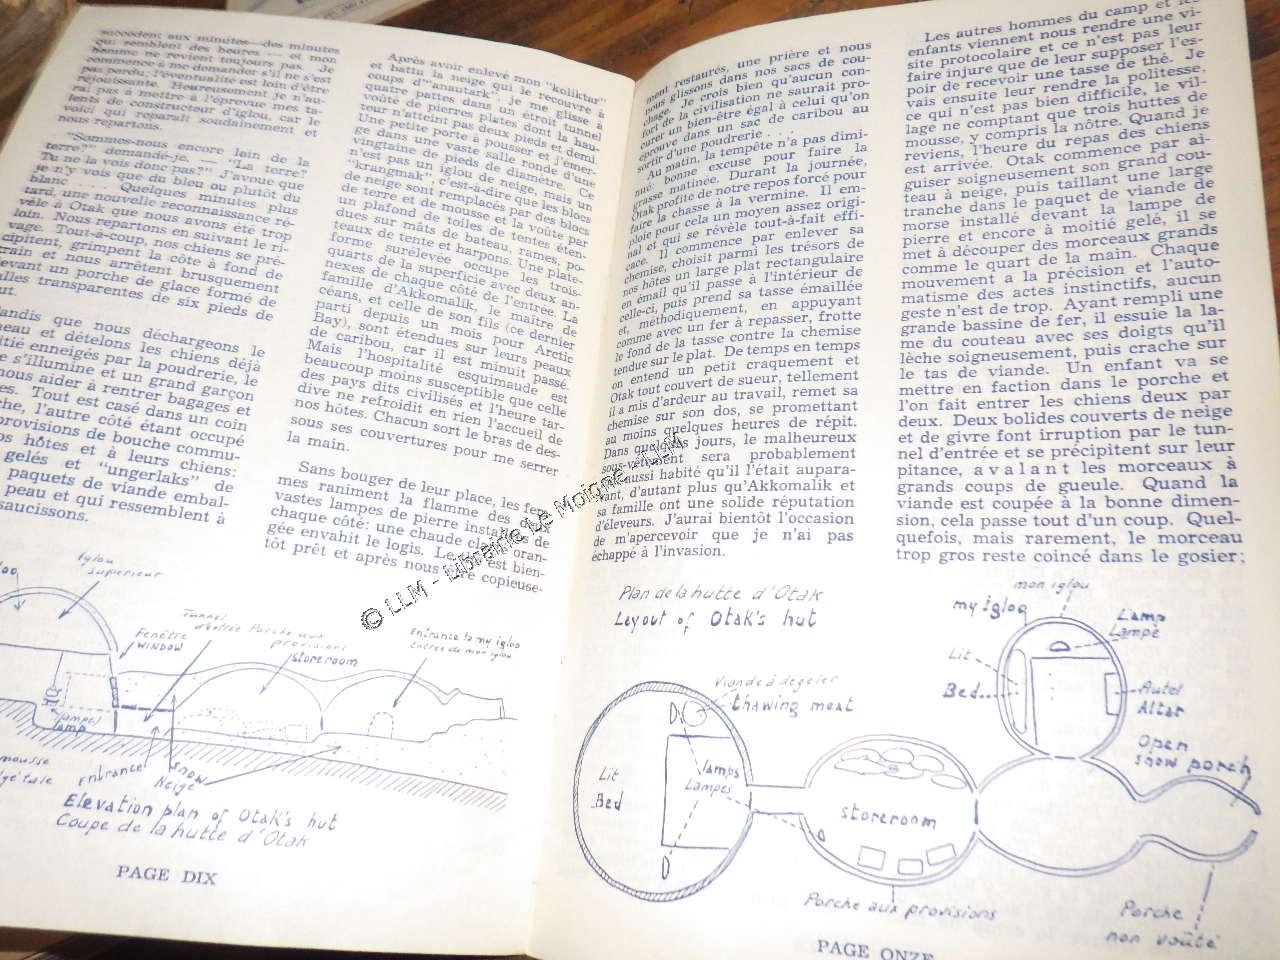 succèdent aux minutes—des minutes
qui semblent des heures — et mon
homme ne revient toujours pas. Je
commence à me demander s'il ne s'est
pas perdu; l'éventualité est loin d'être
réjouissante. Heureusement je n'au-
rai pas à mettre à l'épreuve mes ta-
lents de constructeur d'iglou, car le
voici qui reparaît soudainement et
nous repartons.
"Sommes-nous encore loin de la
terre?" demandé-je. — "La terre?
Tu ne la vois donc pas?" J'avoue que
je n'y vois que du bleu ou plutôt du
blanc . . . . Quelques minutes plus
tard, une nouvelle reconnaissance ré-
vèle à Otak que nous avons été trop
loin. Nous repartons en suivant le ri-
vage. Tout-à-coup, nos chiens se pré-
cipitent, grimpent la côte à fond de
train et nous arrêtent brusquement
devant un porche de glace formé de
alles transparentes de six pieds de
ut.
andis que nous déchargeons le
neau et dételons les chiens déjà
itié enneigés par la poudrerie, le
e s'illumine et un grand garçon
nous aider à rentrer bagages et
es. Tout est casé dans un coin
che, l'autre côté étant occupé
provisions de bouche commu-
os hôtes et à leurs chiens:
gelés et "ungerlaks" de
paquets de viande embal-
peau et qui ressemblent à
saucissons.
Après avoir enlevé mon "koliktar"
et battu la neige qui le recouvre à
coups d'"anautark", je me glisse à
quatre pattes dans un étroit tunnel
voûté de pierres plates dont la hau-
teur n'atteint pas deux pieds et demi.
Une petite porte à pousser et j'émer-
ge dans une vaste salle ronde d'une
vingtaine de pieds de diamètre. Ce
n'est pas un iglou de neige, mais un
"krangmak", c'est-à-dire que les blocs
de neige sont remplacés par des blocs
de terre et de mousse et la voûte par
un plafond de toiles de tentes éten-
dues sur mâts de bateau, rames, po-
teaux de tente et harpons. Une plate-
forme surélevée occupe les trois-
quarts de la superficie avec deux an-
nexes de chaque côté de l'entrée. La
famille d'Akkomalik, le maître de
céans, et celle de son fils (ce dernier
parti depuis un mois pour Arctic
Bay), sont étendues sur leurs peaux
de caribou, car il est minuit passé.
Mais l'hospitalité esquimaude est
beaucoup moins susceptible que celle
des pays dits civilisés et l'heure tar-
dive ne refroidit en rien l'accueil de
nos hôtes. Chacun sort le bras de des-
sous ses couvertures pour me serrer
la main.
Sans bouger de leur place, les fem-
mes raniment la flamme des deux
vastes lampes de pierre installées de
chaque côté: une chaude clarté oran-
gée envahit le logis. Le thé est bien-
tôt prêt et après nous être copieuse-
Iglou
supérieur
Tunnel
d'entrée
Porche aux
provisions
storeroom
Fenêtre
WINDOW
Entrance to my igloo
Entrée de mon iglou
lampe
lamp
mousse
Entrance
snow
Neige
Elevation plan of Otak's hut
Coupe de la hutte d'Otak
PAGE DIX
ment restaurés, une prière et nous
nous glissons dans nos sacs de cou-
chage. Je crois bien qu'aucun con-
fort de la civilisation ne saurait pro-
curer un bien-être égal à celui qu'on
éprouve dans un sac de caribou au
sortir d'une poudrerie . . .
Au matin, la tempête n'a pas dimi-
nué: bonne excuse pour faire la
grasse matinée. Durant la journée,
Otak profite de notre repos forcé pour
faire la chasse à la vermine. Il em-
ploie pour cela un moyen assez origi-
nal et qui se révèle tout-à-fait effi-
cace. Il commence par enlever sa
chemise, choisit parmi les trésors de
nos hôtes un large plat rectangulaire
en émail qu'il passe à l'intérieur de
celle-ci, puis prend sa tasse émaillée
et, méthodiquement, en appuyant
comme avec un fer à repasser, frotte
le fond de la tasse contre la chemise
tendue sur le plat. De temps en temps
on entend un petit craquement et
Otak tout couvert de sueur, tellement
il a mis d'ardeur au travail, remet sa
chemise sur son dos, se promettant
au moins quelques heures de répit.
Dans quelques jours, le malheureux
sous-vêtement sera probablement
aussi habité qu'il l'était aupara-
vant, d'autant plus qu'Akkomalik et
sa famille ont une solide réputation
d'éleveurs. J'aurai bientôt l'occasion
de m'apercevoir que je n'ai pas
échappé à l'invasion.
Les autres hommes du camp et les
enfants viennent nous rendre une vi-
site protocolaire et ce n'est pas leur
faire injure que de leur supposer l'es-
poir de recevoir une tasse de thé. Je
vais ensuite leur rendre la politesse,
ce qui n'est pas bien difficile, le vil-
lage ne comptant que trois huttes de
mousse, y compris la nôtre. Quand je
reviens, l'heure du repas des chiens
est arrivée. Otak commence par ai-
guiser soigneusement son grand cou-
teau à neige, puis taillant une large
tranche dans le paquet de viande de
morse installé devant la lampe de
pierre et encore à moitié gelé, il se
met à découper des morceaux grands
comme le quart de la main. Chaque
mouvement a la précision et l'auto-
matisme des actes instinctifs, aucun
geste n'est de trop. Ayant rempli une
grande bassine de fer, il essuie la la-
me du couteau avec ses doigts qu'il
lèche soigneusement, puis crache sur
le tas de viande. Un enfant va se
mettre en faction dans le porche et
l'on fait entrer les chiens deux par
deux. Deux bolides couverts de neige
et de givre font irruption par le tun-
nel d'entrée et se précipitent sur leur
pitance, avalant les morceaux à
grands coups de gueule. Quand la
viande est coupée à la bonne dimen-
sion, cela passe tout d'un coup. Quel-
quefois, mais rarement, le morceau
trop gros reste coincé dans le gosier;
Plan de la hutte d'Otak
Layout of Otak's hut
mon iglou
my igloo
Lamp
Lampe
Lit
Bed
Autel
Altar
Open
snow porch
Viande à dégeler
thawing meat
lamps
Lampes
Lit
Bed
storeroom
Porche aux provisions
Porche
non voûté
PAGE ONZE
© LLM - Librairie Le Moigne - LLM